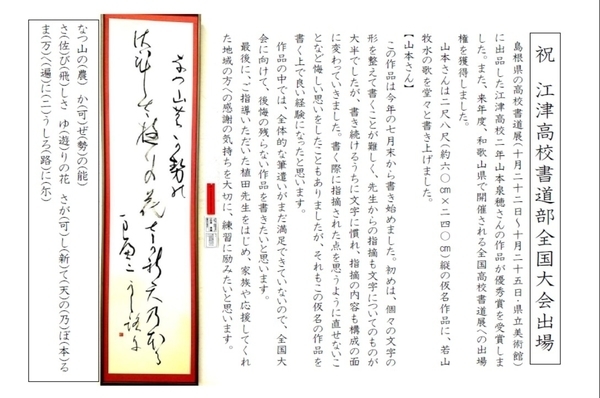 祝 江津高校書道部全国大会出場
島根県の高校書道展(十月二十二日〜十月二十五日・県立美術館)
に出品した江津高校二年山本泉穂さんの作品が優秀賞を受賞しま
した。また、来年度、和歌山県で開催される全国高校書道展への出場
権を獲得しました。
山本さんは二尺八尺(約六〇㎝×二四〇㎝)縦の仮名作品に、若山
牧水の歌を堂々と書き上げました。
【山本さん】
この作品は今年の七月末から書き始めました。初めは、個々の文字の
形を整えて書くことが難しく、先生からの指摘も文字についてのものが
大半でしたが、書き続けるうちに文字に慣れ、指摘の内容も構成の面
に変わっていきました。書く際に指摘された点を思うように直せないこ
となど悔しい思いをしたこともありましたが、それもこの仮名の作品を
書く上で良い経験になったと思います。
作品の中では、全体的な筆遣いがまだ満足できていないので、全国大
会に向けて、後悔の残らない作品を書きたいと思います。
最後に、ご指導いただいた植田先生をはじめ、家族や応援してくれ
た地域の方への感謝の気持ちを大切に、練習に励みたいと思います。
なつ山の(農) か(可)ぜ(勢)の(能)
さ(佐)び(飛)しさ ゆ(遊)りの花 さが(可)し(新)て(天)の(乃)ぼ(本)る
ま(万)へ(遍)に(二)うしろ(路)に(尓)